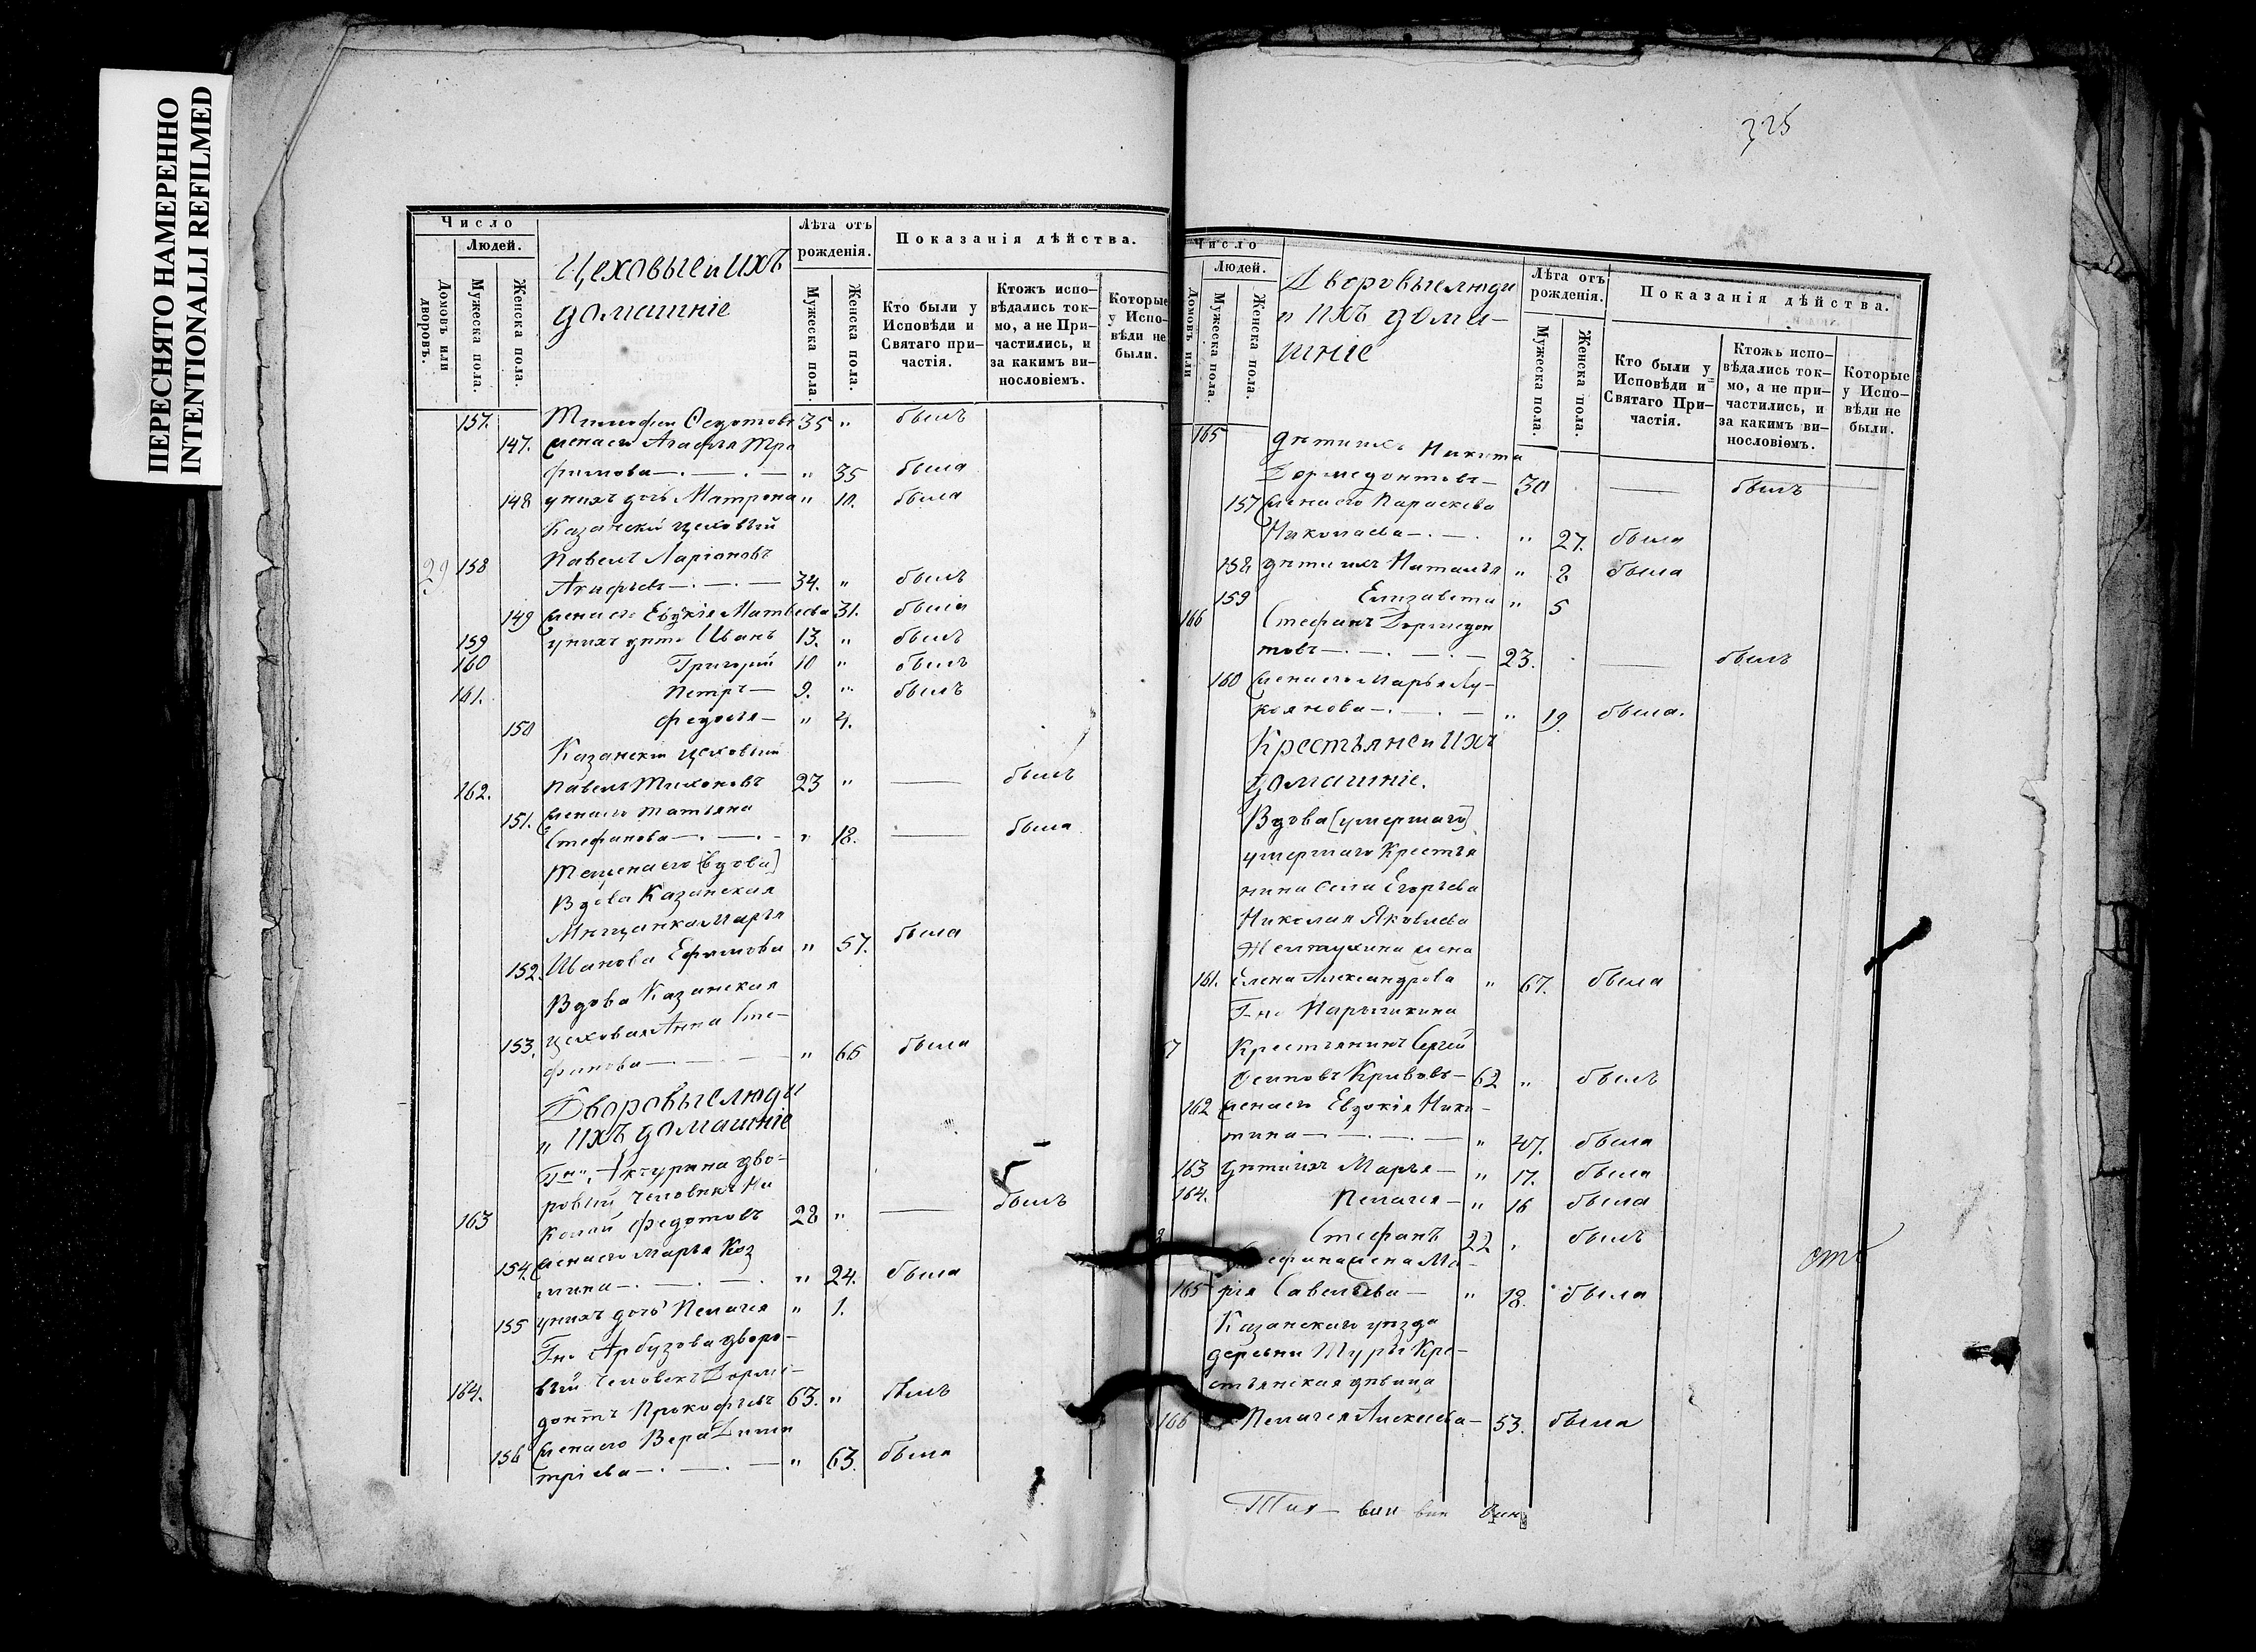 ПЕРЕСНЯТО НАМЕРЕННО
INTENTIONALLI REFILMED
325
Число
Людей.
Домовъ или дворовъ.
Мужеска пола.
Женска пола.
Цеховые и ихъ
домашніе
Лѣта отъ
рожденія.
Мужеска пола.
Женска пола.
Показанія дѣйства.
Кто были у
Исповѣди и
Святаго при-
частія.
Ктожъ испо-
вѣдались ток-
мо, а не При-
частились, и
за какимъ ви-
нословіемъ.
Которые
у Испо-
вѣди не
были.
157. Тимофей Федотовъ 35 " былъ
147. жена его Агафья Тро
фимова — . — . — " 35 была
148 у нихъ дочь Матрона " 10. была
Казанскій цеховый
29 158 Павелъ Ларіоновъ
— . — . — 34. " былъ
149 жена его Евдокія Матвѣева 31. была
159 у нихъ дѣти Иванъ 13. " былъ
160 Григорій 10 " былъ
161. Петръ — 9. " былъ
150 Федосья — " 4.
Казанскій цеховый
162. Павелъ Тихоновъ 23 " — былъ
151. жена его Татьяна
Стефанова — . — . - " 18. — была
Теща его [вдова]
Вдова Казанская
Мѣщанка Марья
152. Иванова Ефимова " 57. была
Вдова Казанская
153. цеховая Анна Сте-
фанова — . — — " 66 была
Дворовые люди
и ихъ домашніе
Гна Актурина дво-
ровый человѣкъ Ни
163 колай Федотовъ 28 " — былъ
154. жена его Марья Коз
мина — . — . — . " 24. была
155 у нихъ дочь Пелагея " 1.
Г-на Арбузова дворо-
вый человѣкъ Дорме-
164. донтъ Прокофьевъ 63. " былъ
156 жена его Вера Дими
тріева — . — . — " 63. была
Число
Людей.
Домовъ или
Мужеска пола.
Женска пола.
Дворовые люди
и ихъ дома-
шніе
Лѣта отъ
рожденія.
Мужеска пола.
Женска пола.
Показанія дѣйства.
Кто были у
Исповѣди и
Святаго При-
частія.
Ктожъ испо-
вѣдались ток-
мо, а не при-
частились, и
за какимъ ви-
нословіемъ.
Которые
у Испо-
вѣди не
были.
165 дѣти ихъ Никита
Дормедонтовъ — 30 — былъ
157 жена его Параскева
Николаева — . — . " 27. была
158 дѣти ихъ Наталья " 8 была
159 Елизавета " 5
166 Стефанъ Дормедон
товъ — . — . — . — 23. — былъ
160 жена его Марья Лу-
кьянова — . — . — " 19. была.
Крестьяне и ихъ
домашніе.
Вдова [умершаго]
умершаго Крестья
нина села Егорьева
Николая Яковлева
Желтухина жена
161. Елена Александрова " 67. была
Г-на Нарышкина
7 Крестьянинъ Сергей
Осиповъ Кривовъ — 62 " былъ
162 жена его Евдокія Ники-
тина — . — . — . — " 47. была
163 дѣти ихъ Марья — " 17. была
164. Пелагея — " 16 была
8 Стефанъ 22 " былъ
Стефана жена Ма-
165 рія Савельева — " 18. была
Казанскаго уѣзда
деревни Туры Кре-
стьянская дѣвица
166 Пелагея Алексѣева — 53. была